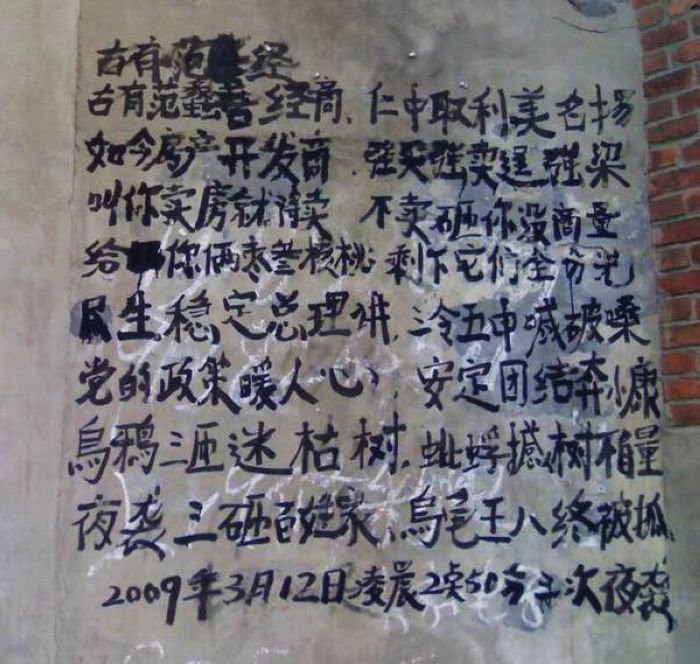 古有范 经
古有范蠡善经商、仁中取利美名扬
如今房产开发商、强买强卖逞强梁
叫你卖房就得卖 不卖砸你没商量
给你俩枣叁核桃 剩下它们全分光
民生稳定总理讲、三令五申喊破嗓
党的政策暖人心、安定团结奔小慷
乌鸦三匝迷枯树、蚍蜉撼树不自量
夜袭三砸百姓家、乌龟王八终被抓
2009年3月12日凌晨2点50分 次夜袭